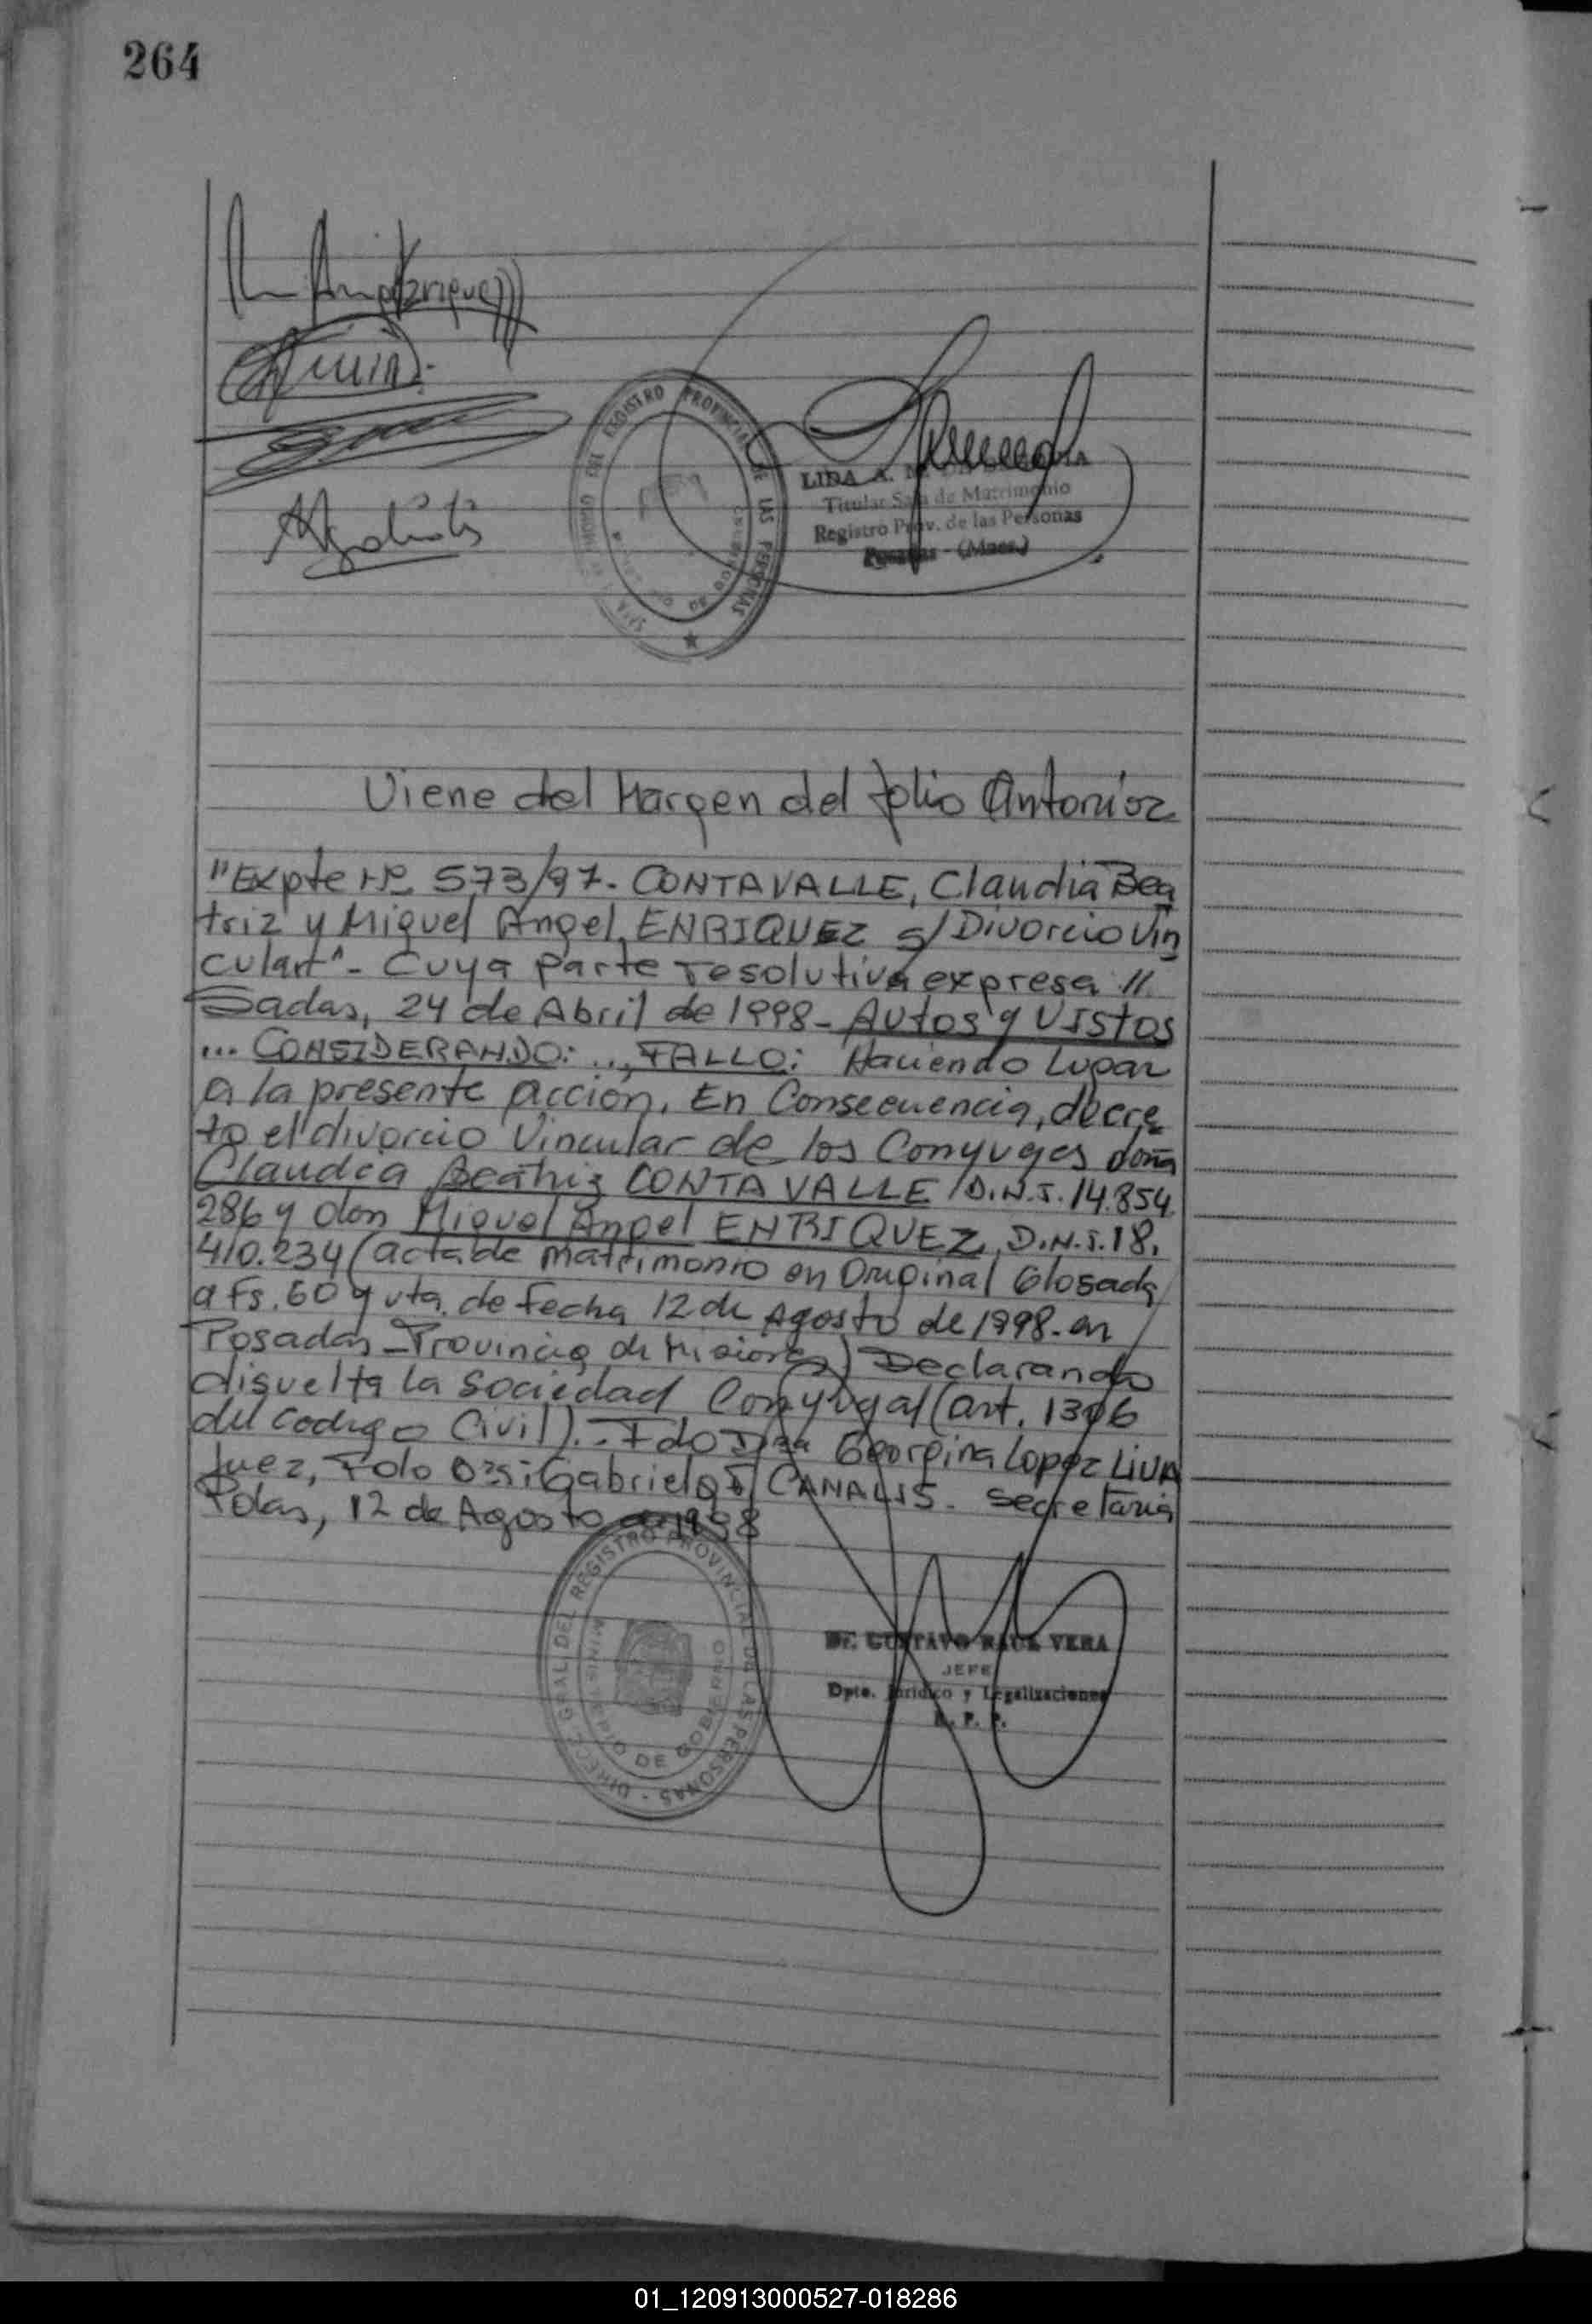 264
REGISTRO PROVINCIAL DE LAS PERSONAS
LIDA A.
Titular Sala de Matrimonio
Registro Prov. de las Personas
Posadas - (Mnes.)
Viene del Margen del folio Anterior
"Expte Nº 573/97- CONTAVALLE, Claudia Bea
triz y Miguel Angel, ENRIQUEZ s/ Divorcio Vin
cular"- Cuya parte resolutiva expresa: //
Sadas, 24 de Abril de 1998- Autos y VIstos
... CONSIDERANDO: ..., FALLO: Haciendo Lugar
a la presente acción. En Consecuencia, decre
to el divorcio Vincular de los Conyuges doña
Claudia Beatriz CONTAVALLE D.N.I. 14.854.
286 y don Miguel Angel ENRIQUEZ, D.N.I. 18.
410.234 (acta de matrimonio en Original Glosada
a Fs. 60 y vta. de fecha 12 de Agosto de 1998- en
Posadas - Provincia de Misiones) Declarando
disuelta la Sociedad Conyugal (art. 1306
del Codigo Civil).- Fdo Dra Georgina Lopez Liva
Juez, Fdo Gabriela CANALIS. Secretaria
Pdas, 12 de Agosto de 1998
DIRECC. GRAL. DEL REGISTRO PROVINCIAL DE LAS PERSONAS -
MINISTERIO DE GOBIERNO
Dr. GUSTAVO RAUL VERA
JEFE
Dpto. Jurídico y Legalizaciones
R. P. P.
01_120913000527-018286